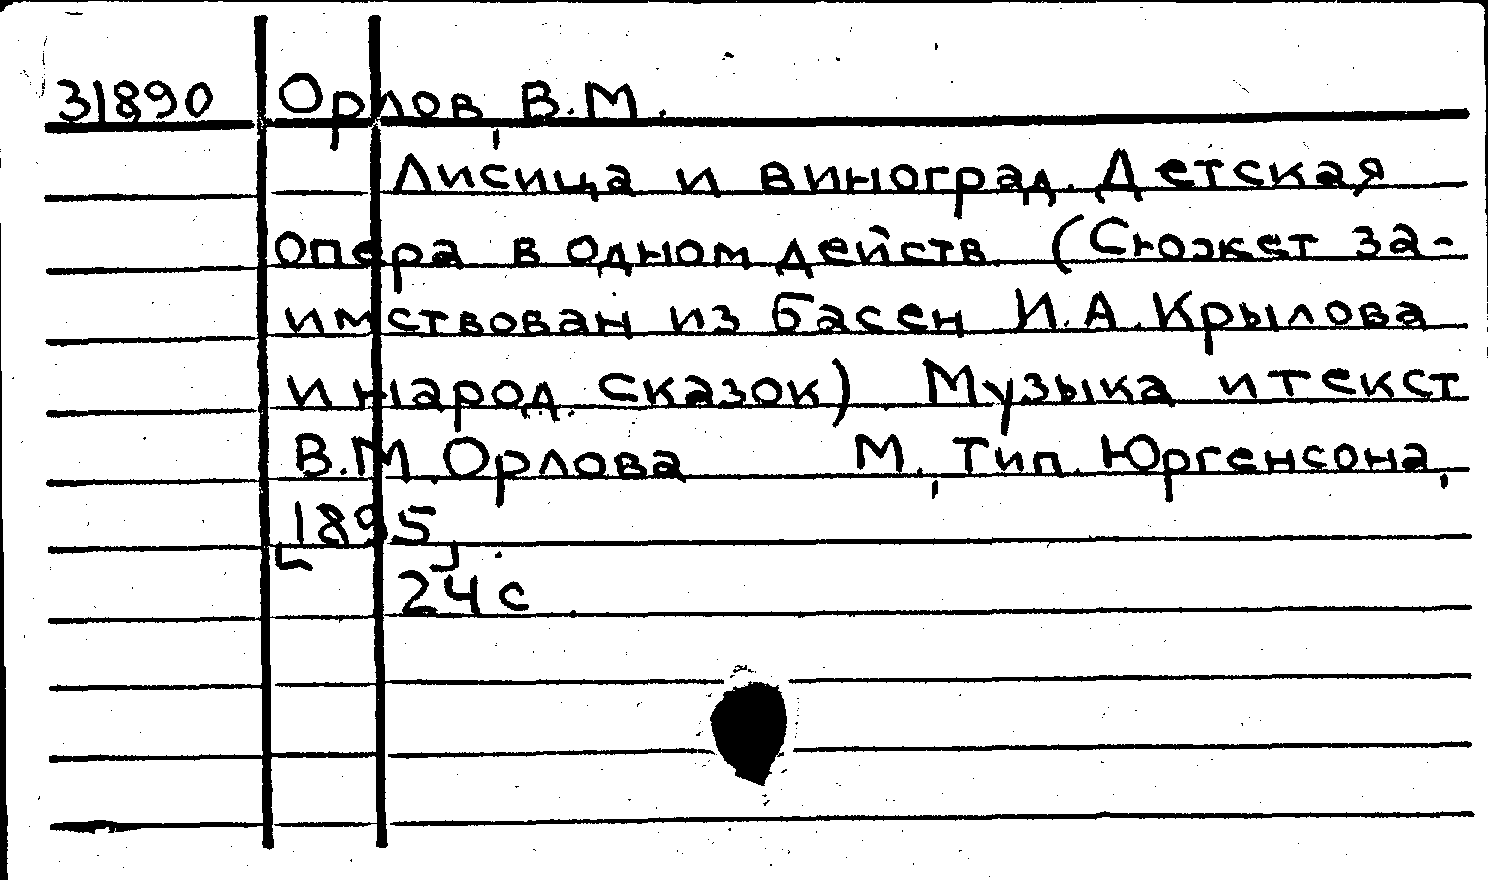 31890 Орлов, В.М.
Лисица и виноград. Детская
опера в одном действ. (Сюжет за-
имствован из басен И.А. Крылова
и народ. сказок) Музыка и текст
В.М. Орлова М., Тип. Юргенсона,
[1895].
24 с.